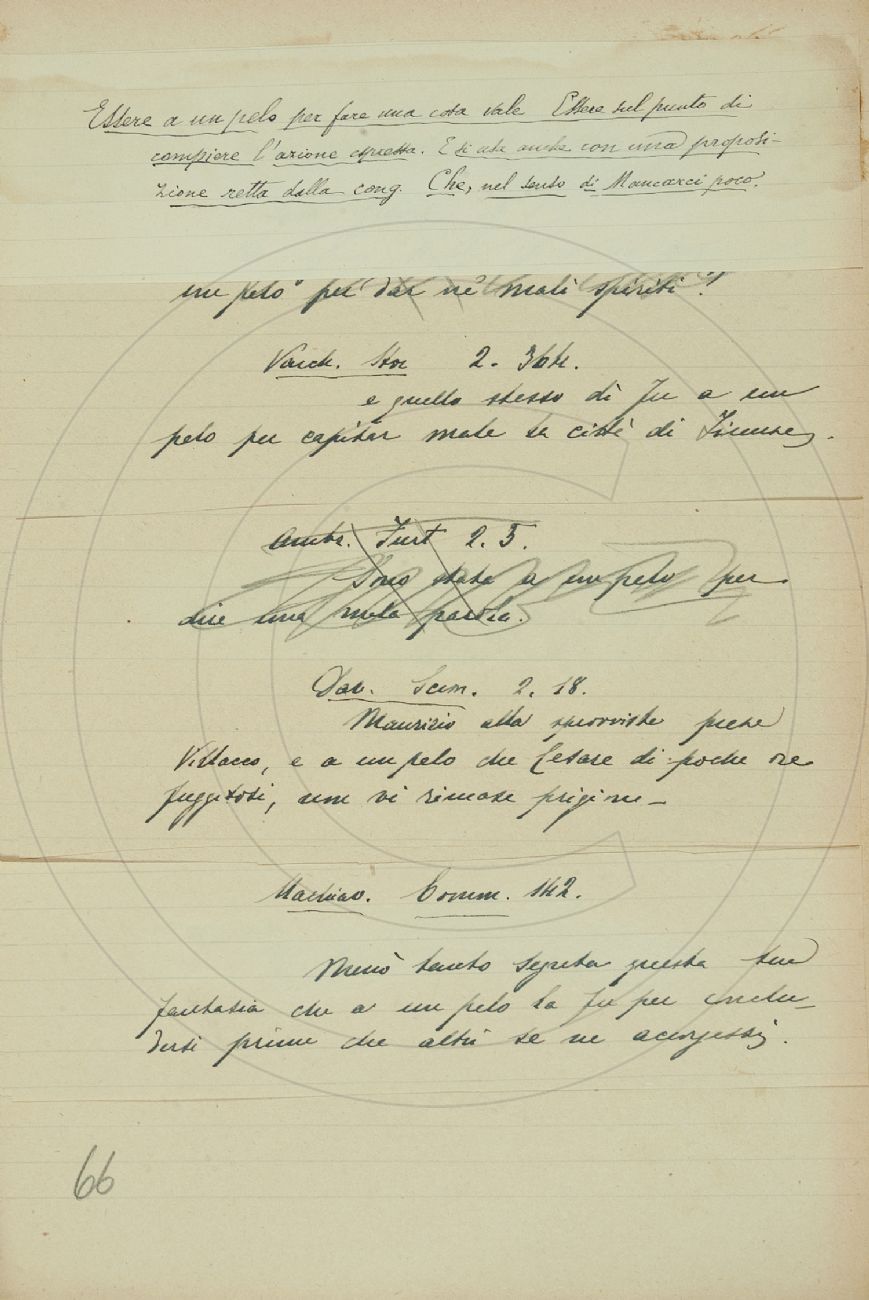 Essere a un pelo per fare una cosa vale Essere sul punto di
compiere l'azione espressa. E si usa anche con una proposi-
zione retta dalla cong. Che, nel senso di Mancarci poco.
un pelo per dar ne' mali spiriti!
Varch. Stor 2. 364.
e quello stesso dì fu a un
pelo per capitar male la città di Firenze.
Ambr. Furt 2. 5.
Sono stata a un pelo per
dire una mala parola.
Dav. Scism. 2. 18.
Maurizio alla sprovvista prese
Villacco, e a un pelo che Cesare di poche ore
fuggitosi, non vi rimase prigione
Machiav. Comm. 142.
Menò tanto segreta questa sua
fantasia che a un pelo la fu per conclu-
dersi prima che altri se ne accorgessi.
66